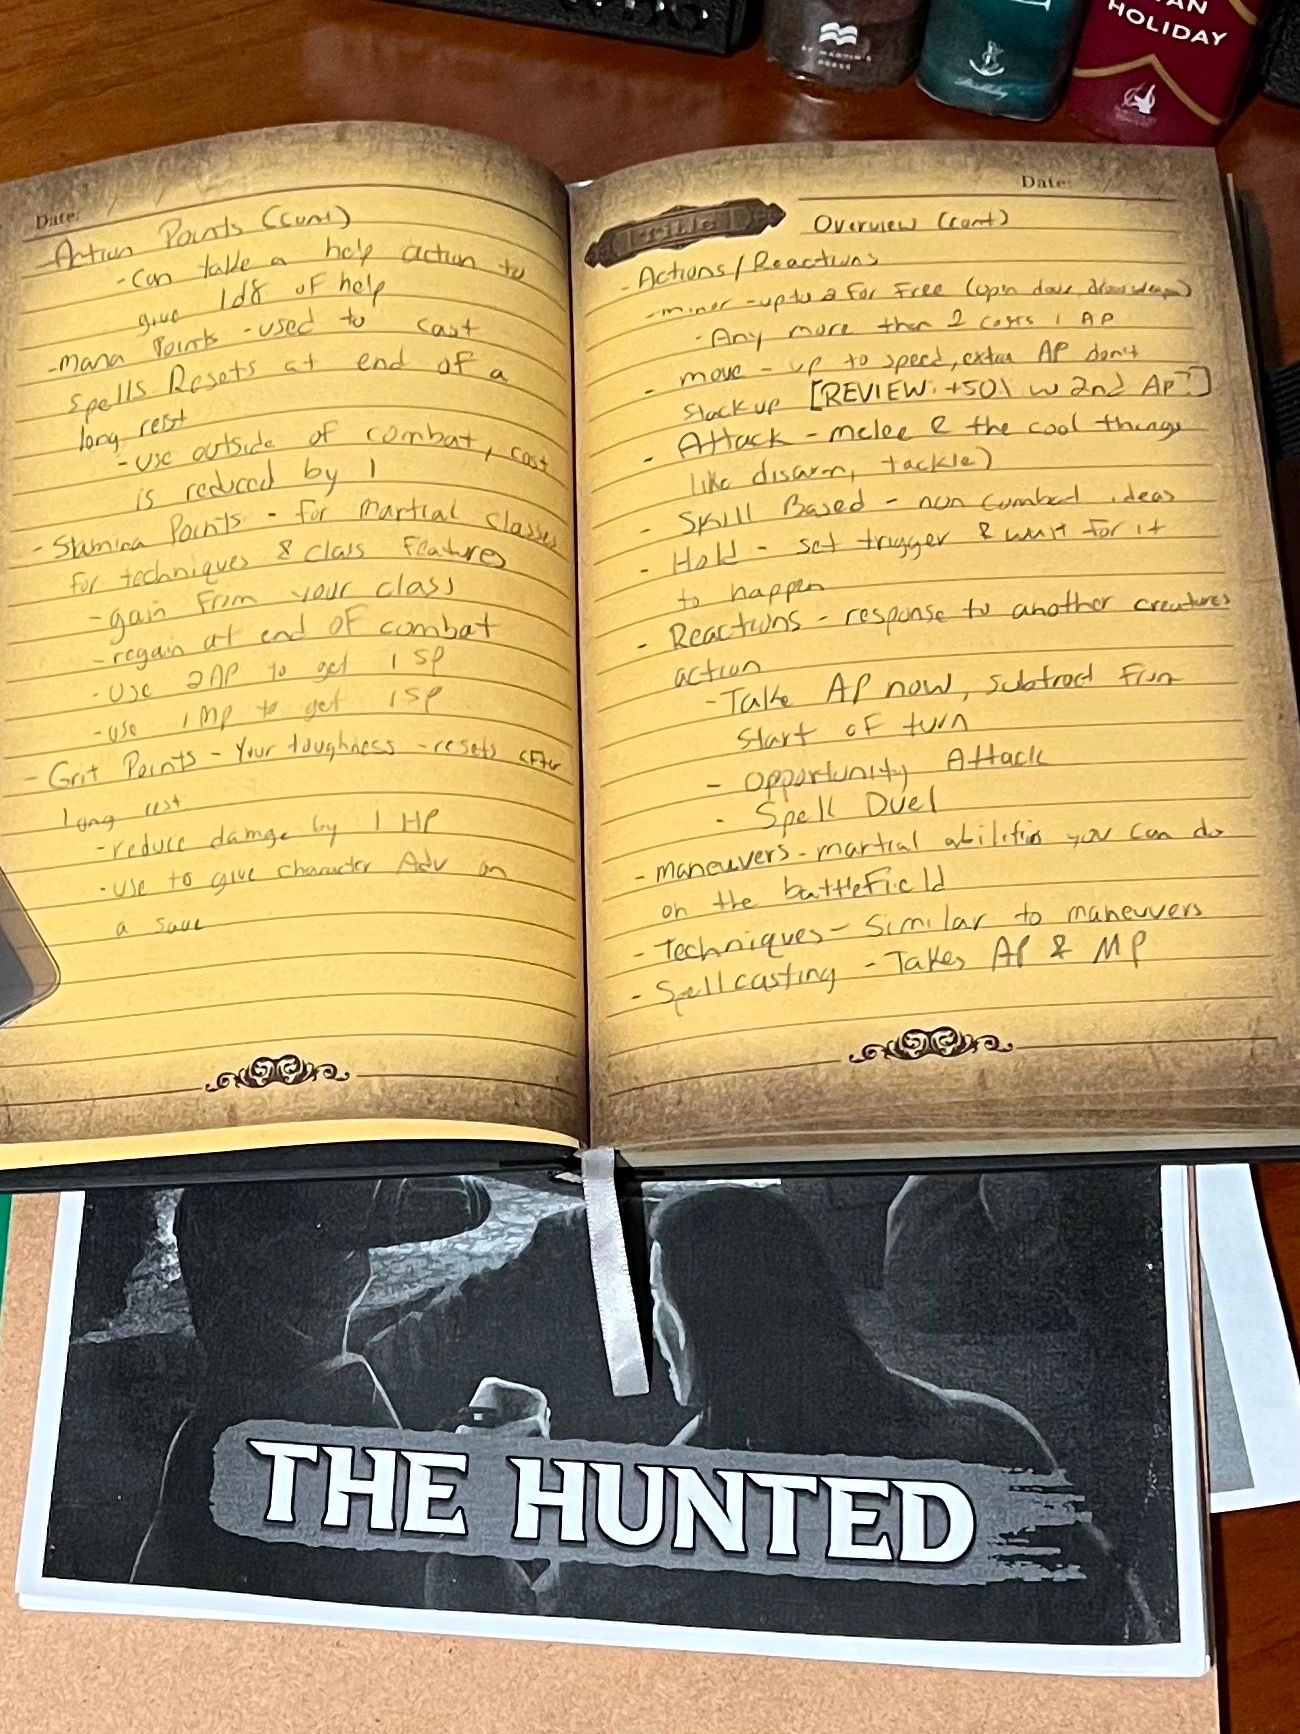 HOLIDAY
ST. MARTIN'S
PRESS
Date:
- Action Points (cont)
- Can take a help action to
give 1d8 of help
- Mana Points - used to cast
spells. Resets at end of a
long rest
- use outside of combat, cost
is reduced by 1
- Stamina Points - for martial classes
for techniques & class features
- gain from your class
- regain at end of combat
- use 2AP to get 1 SP
- use 1 MP to get 1 SP
- Grit Points - Your toughness - resets after
long rest
- reduce damge by 1 HP
- use to give character Adv on
a save
Date:
Title
Overview (cont)
- Actions/Reactions
- minor - up to 2 for free (open door, draw weapon)
- Any more then 2 costs 1 AP
- move - up to speed, extra AP don't
stack up [REVIEW: +50% w 2nd AP?]
- Attack - melee & the cool things
like disarm, tackle)
- Skill Based - non combad ideas
- Hold - set trigger & wait for it
to happen
- Reactions - response to another creatures
action
- Take AP now, subtract from
start of turn
- Opportunity Attack
- Spell Duel
- Maneuvers - martial abilities you can do
on the battlefield
- Techniques - Similar to maneuvers
- Spellcasting - Takes AP & MP
THE HUNTED